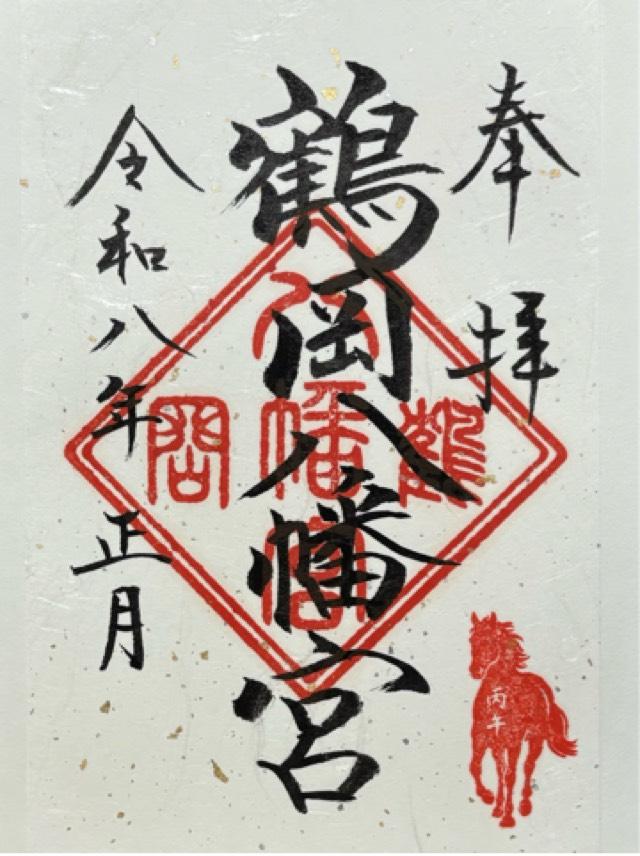 奉拝
鶴岡八幡宮
令和八年正月
鶴
岡
八
幡
宮
丙午